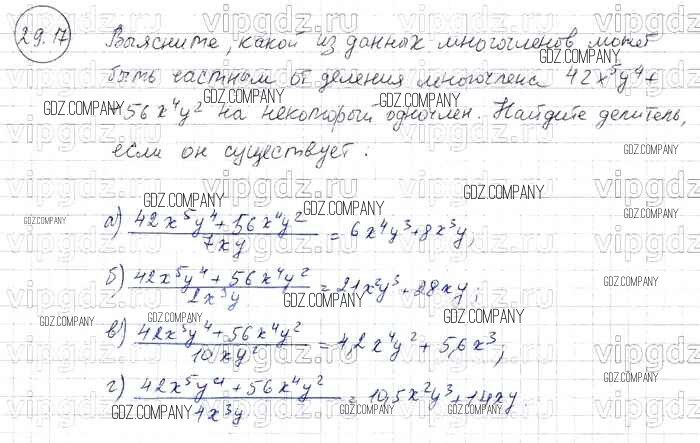 29.17 Выясните, какой из данных многочленов может
быть частным от деления многочлена 42x⁵y⁴+
+56x⁴y² на некоторый одночлен. Найдите делитель,
если он существует:
а) (42x⁵y⁴+56x⁴y²)/(7xy) = 6x⁴y³+8x³y;
б) (42x⁵y⁴+56x⁴y²)/(2x³y) = 21x²y³+28xy;
в) (42x⁵y⁴+56x⁴y²)/(10xy²) = 4,2x⁴y²+5,6x³;
г) (42x⁵y⁴+56x⁴y²)/(4x³y) = 10,5x²y³+14xy
vipgdz.ru
GDZ.COMPANY